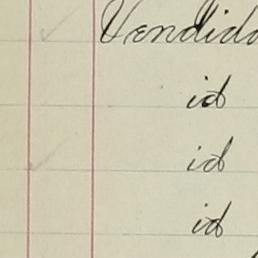 Vendido
id
id
id